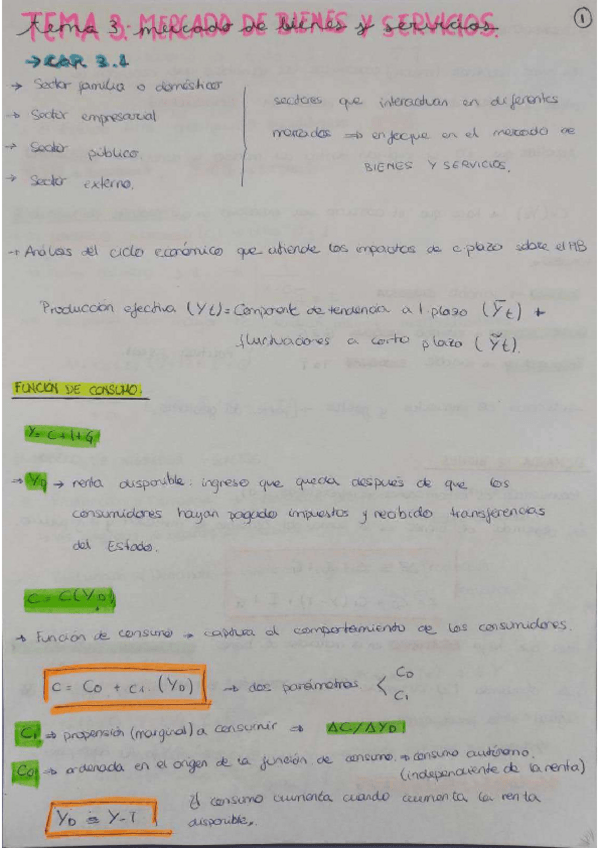 TEMA 3: MERCADO DE BIENES Y SERVICIOS.
①
→ CAP 3.1
→ Sector familia o doméstico
→ Sector empresarial
→ Sector público
→ Sector externo.
sectores que interactuan en diferentes
mercados ⇒ enfoque en el mercado de
BIENES Y SERVICIOS.
→ Análisis del ciclo económico que atiende los impactos de c.plazo sobre el PIB
Producción efectiva (Yt) = Componente de tendencia a l.plazo (Ȳt) +
fluctuaciones a corto plazo (Ỹt).
FUNCIÓN DE CONSUMO:
Y = C+I+G
→ YD → renta disponible: ingreso que queda después de que los
consumidores hayan pagado impuestos y recibido transferencias
del Estado.
C = C(YD)
→ Función de consumo → captura el comportamiento de los consumidores.
C = C0 + C1. (YD) → dos parámetros < C0
C1
C1 ⇒ propensión (marginal) a consumir ⇒ ΔC/ΔYD
C0 ⇒ ordenada en el origen de la función de consumo. → consumo autónomo.
(independiente de la renta)
YD ≡ Y-T
El consumo aumenta cuando aumenta la renta
disponible,